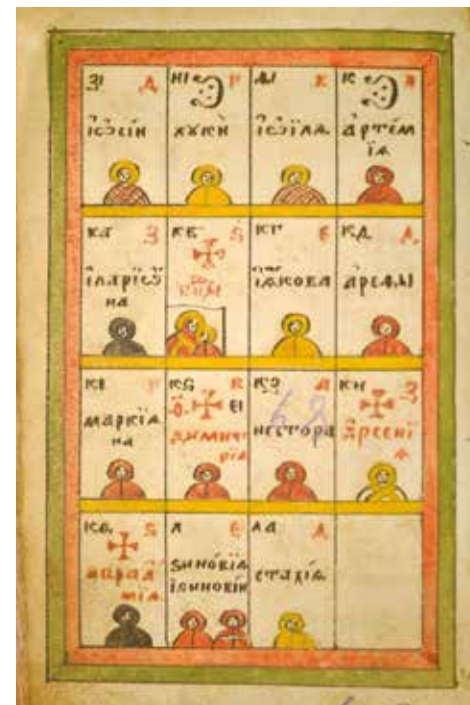 зі д
ѡсіи
ні г
лꙋки
ѳі в
іѡїлѧ
к а
артем
їѧ
ка з
іларїѡ
на
кв ѕ
кг є
іакова
кд д
арефы
кє г
маркїа
на
кѕ в
димит
рїѧ
кз а
нестора
ки з
арсенї
ѧ
кѳ ѕ
аврам
їѧ
л є
зиновїѧ
їзиновїи
ла д
стахїѧ